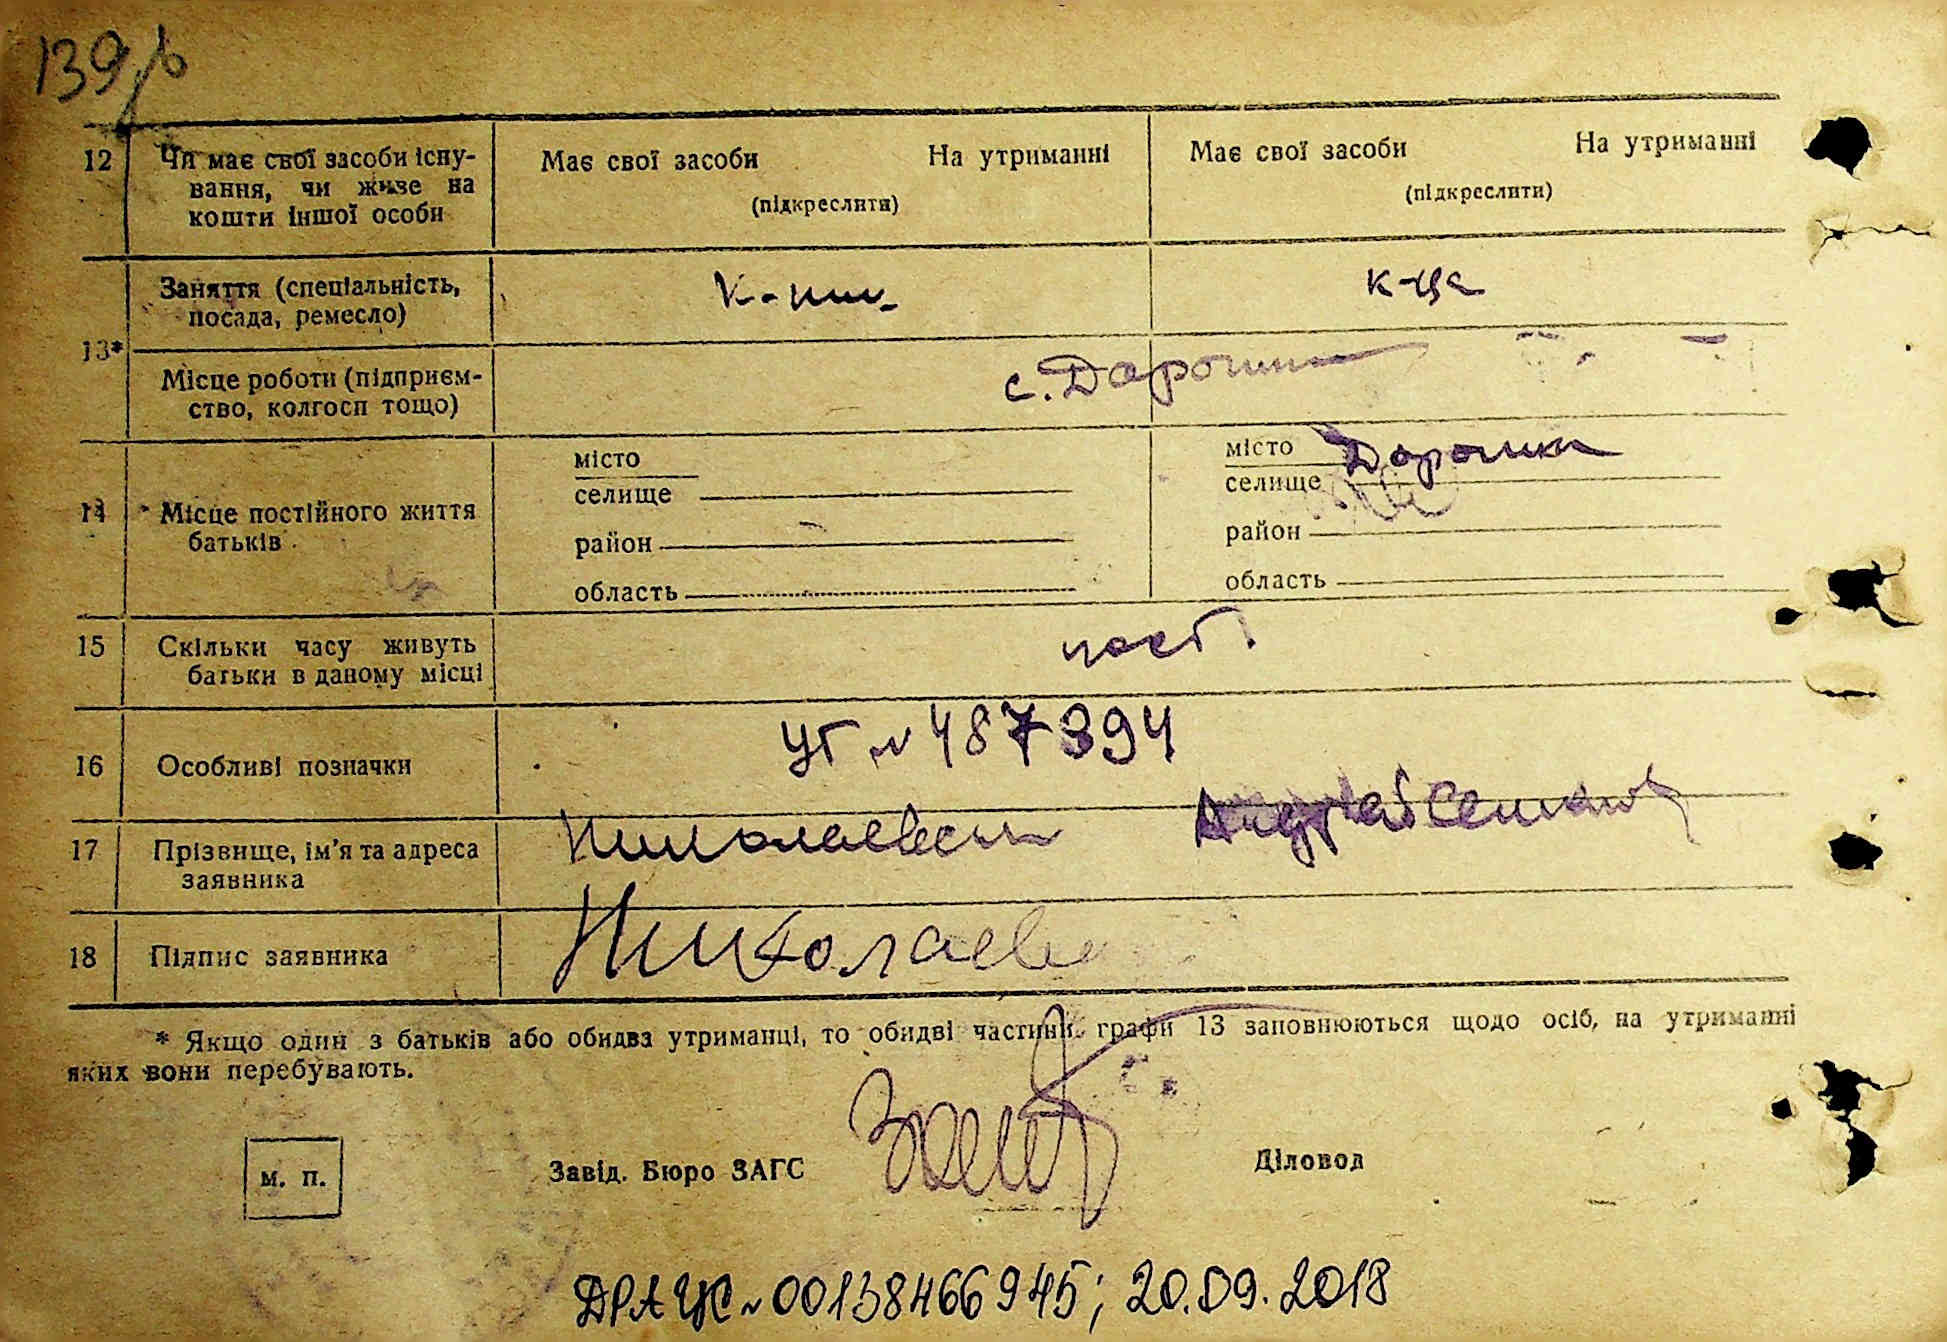 139
12 Чи має свої засоби існу- Має свої засоби На утриманні Має свої засоби На утриманні
вання, чи живе на (підкреслити) (підкреслити)
кошти іншої особи
13* Заняття (спеціальність, к-ник к-ця
посада, ремесло)
Місце роботи (підприєм- с.
ство, колгосп тощо)
14 Місце постійного життя місто місто
батьків селище селище
район район
область область
15 Скільки часу живуть пост.
батьки в даному місці
16 Особливі позначки УГ № 487394
17 Прізвище, ім'я та адреса
заявника
18 Підпис заявника
* Якщо один з батьків або обидва утриманці, то обидві частини графи 13 заповнюються щодо осіб, на утриманні
яких вони перебувають.
м. п. Завід. Бюро ЗАГС Діловод
ДРАЦС № 00138466945; 20.09.2018